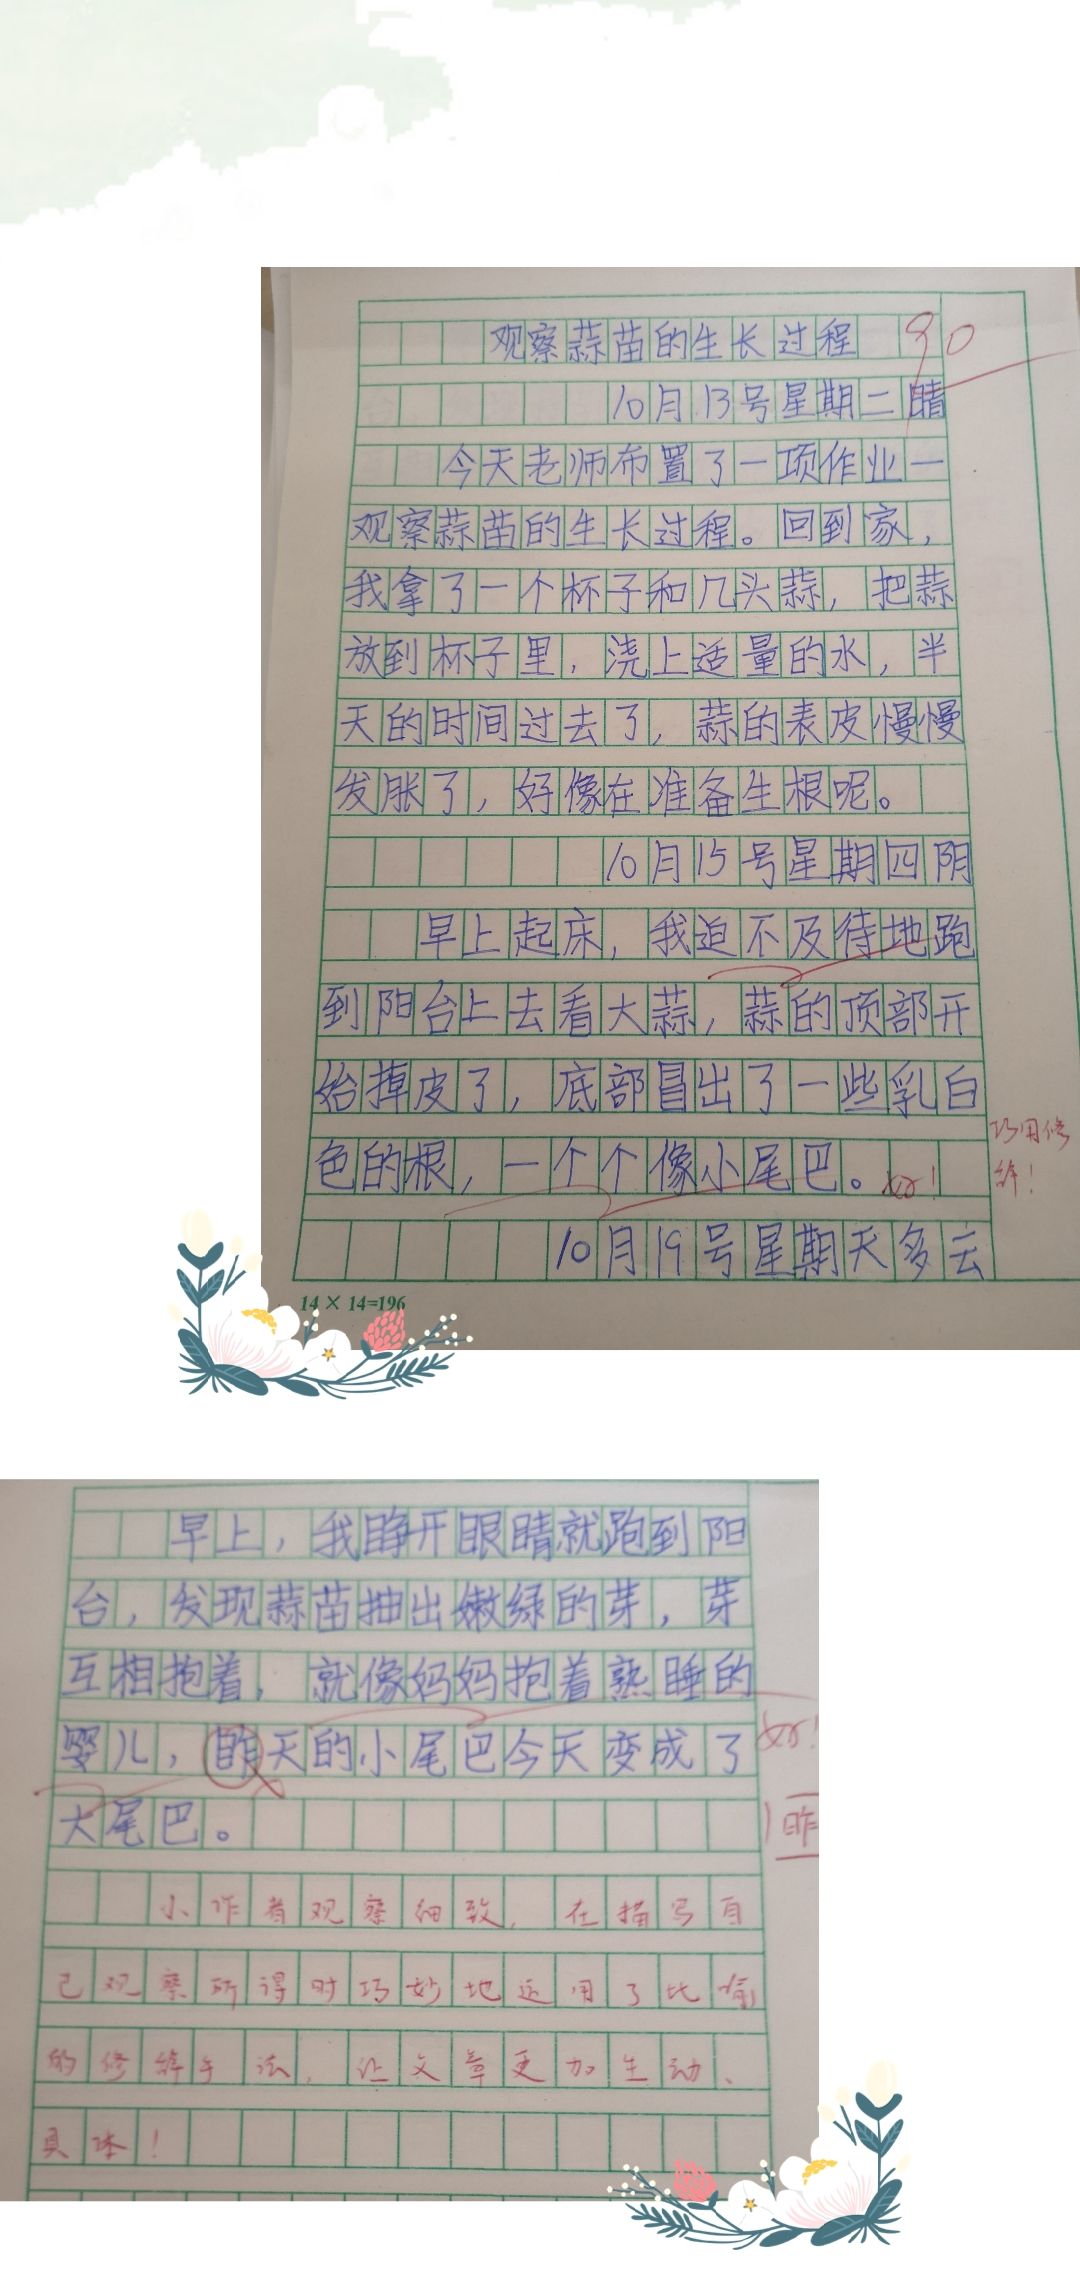 观察蒜苗的生长过程 90
10月13号星期二晴
今天老师布置了一项作业一
观察蒜苗的生长过程。回到家,
我拿了一个杯子和几头蒜,把蒜
放到杯子里,浇上适量的水,半
天的时间过去了,蒜的表皮慢慢
发胀了,好像在准备生根呢。
10月15号星期四阴
早上起床,我迫不及待地跑
到阳台上去看大蒜,蒜的顶部开
始掉皮了,底部冒出了一些乳白
色的根,一个个像小尾巴。好!
巧用修
辞!
10月19号星期天多云
14×14=196
早上,我睁开眼睛就跑到阳
台,发现蒜苗抽出嫩绿的芽,芽
互相抱着,就像妈妈抱着熟睡的
婴儿,昨天的小尾巴今天变成了
好!
大尾巴。
昨
小作者观察细致,在描写自
己观察所得时巧妙地运用了比喻
的修辞手法,让文章更加生动、
具体!